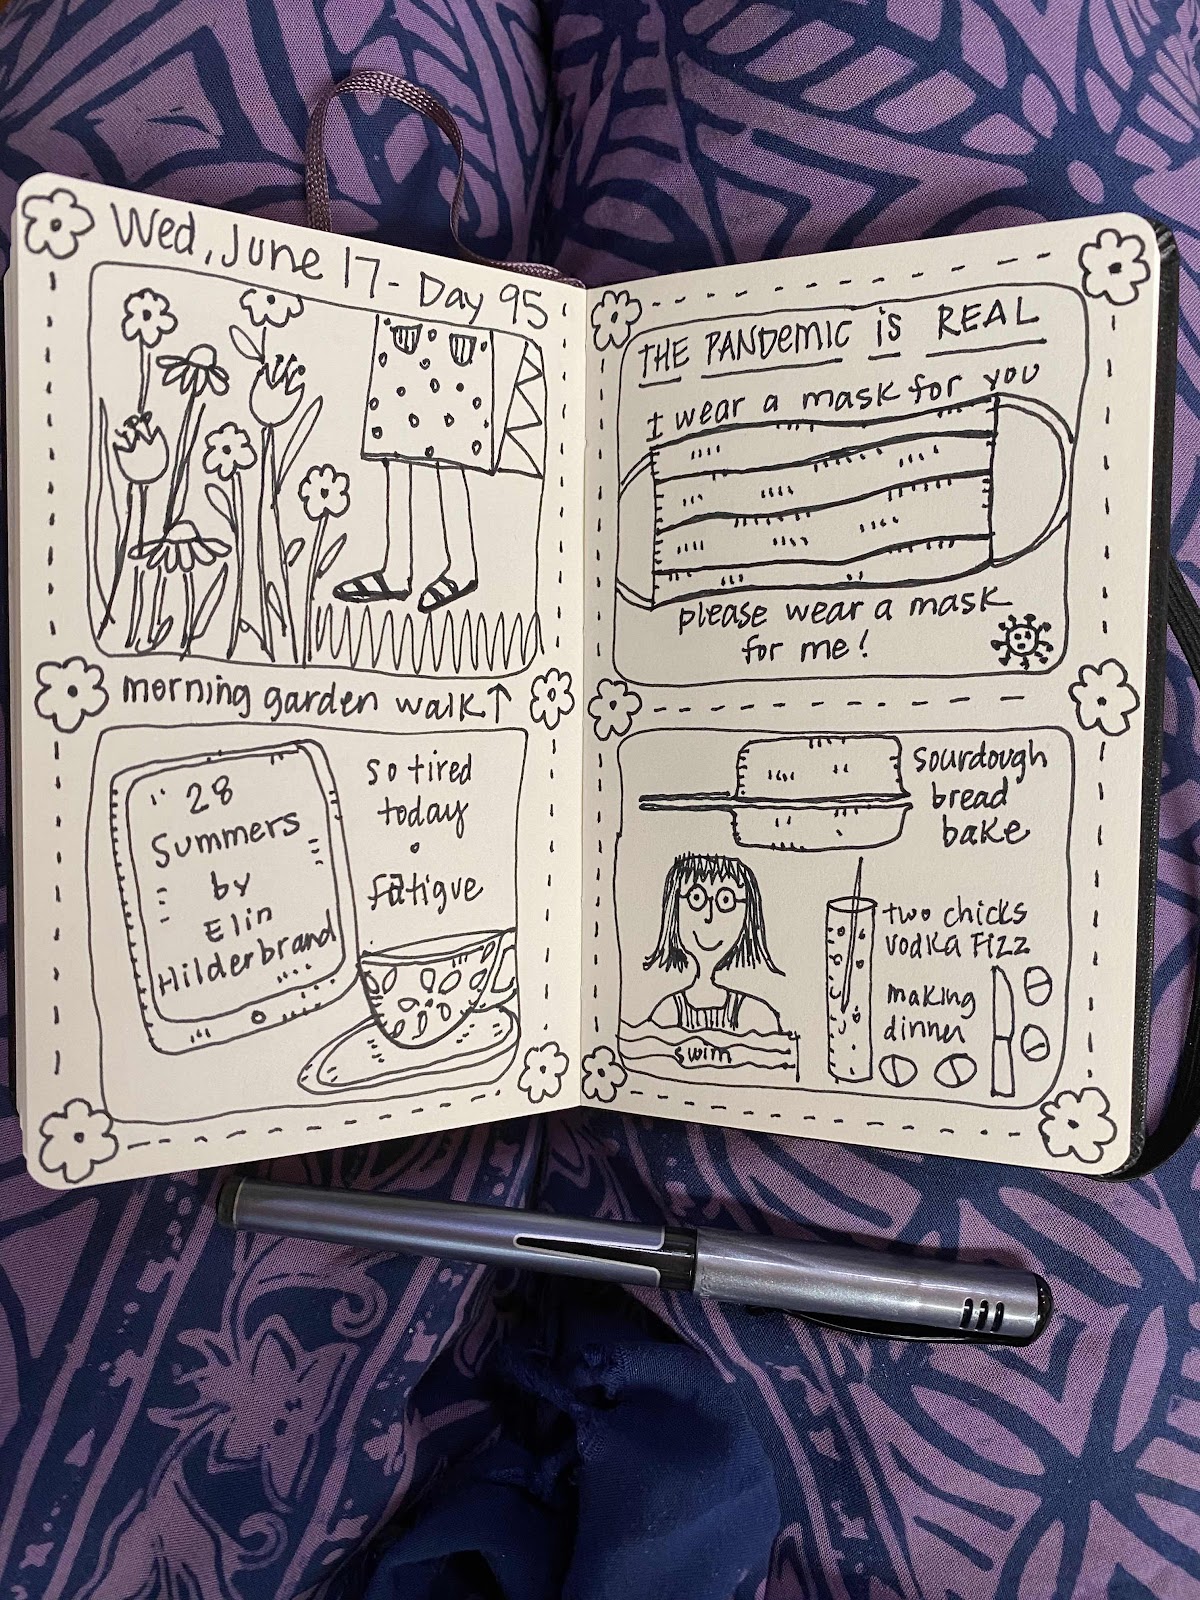 Wed, June 17 - Day 95
morning garden walk ↑
28
Summers
by
Elin
Hilderbrand
so tired
today
fatigue
THE PANDEMIC IS REAL
I wear a mask for you
please wear a mask
for me!
sourdough
bread
bake
two chicks
vodka Fizz
making
dinner
swim